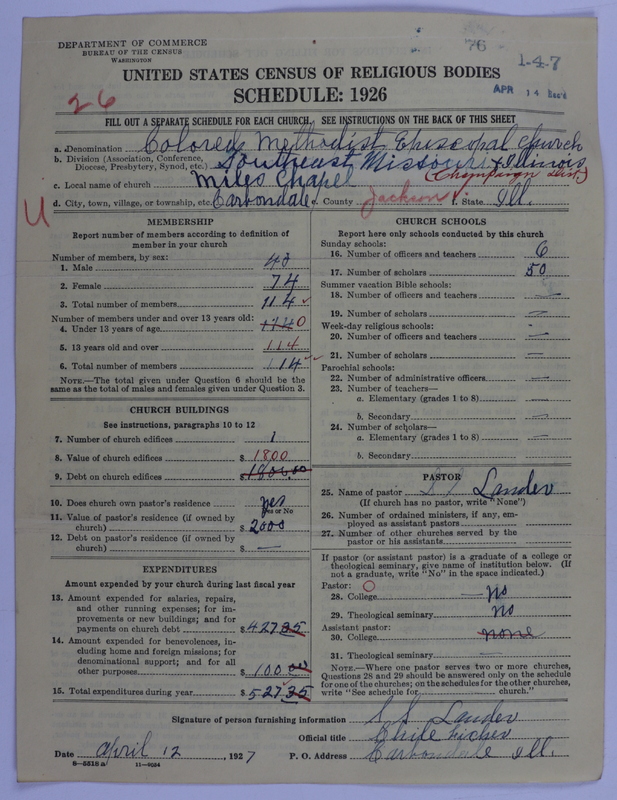 DEPARTMENT OF COMMERCE
BUREAU OF THE CENSUS
WASHINGTON
76
1-4-7
APR 14
26
UNITED STATES CENSUS OF RELIGIOUS BODIES
SCHEDULE: 1926
FILL OUT A SEPARATE SCHEDULE FOR EACH CHURCH. SEE INSTRUCTIONS ON THE BACK OF THIS SHEET
a. Denomination Colored Methodist Episcopal Church
b. Division (Association, Conference, Diocese, Presbytery, Synod, etc.) Southeast Missouri & Illinois
(Champaign Dist.)
c. Local name of church Miles Chapel
d. City, town, village, or township, etc. Carbondale e. County Jackson f. State Ill.
U
MEMBERSHIP
Report number of members according to definition of
member in your church
Number of members, by sex:
1. Male 40
2. Female 74
3. Total number of members 114
Number of members under and over 13 years old:
4. Under 13 years of age 0
5. 13 years old and over 114
6. Total number of members 114
NOTE.—The total given under Question 6 should be
same as the total of males and females given under Question 3.
CHURCH BUILDINGS
See instructions, paragraphs 10 to 12
7. Number of church edifices 1
8. Value of church edifices $ 1800
9. Debt on church edifices $ 1800.00
10. Does church own pastor's residence yes
Yes or No
11. Value of pastor's residence (if owned by
church) $ 2000
12. Debt on pastor's residence (if owned by
church) $ —
EXPENDITURES
Amount expended by your church during last fiscal year
13. Amount expended for salaries, repairs,
and other running expenses; for im-
provements or new buildings; and for
payments on church debt $ 427 35
14. Amount expended for benevolences, in-
cluding home and foreign missions; for
denominational support; and for all
other purposes $ 100 00
15. Total expenditures during year $ 527 35
CHURCH SCHOOLS
Report here only schools conducted by this church
Sunday schools:
16. Number of officers and teachers 6
17. Number of scholars 50
Summer vacation Bible schools:
18. Number of officers and teachers —
19. Number of scholars —
Week-day religious schools:
20. Number of officers and teachers —
21. Number of scholars —
Parochial schools:
22. Number of administrative officers —
23. Number of teachers—
a. Elementary (grades 1 to 8) —
b. Secondary —
24. Number of scholars—
a. Elementary (grades 1 to 8) —
b. Secondary —
PASTOR
25. Name of pastor S S Lander
(If church has no pastor, write "None")
26. Number of ordained ministers, if any, em-
ployed as assistant pastors
27. Number of other churches served by the
pastor or his assistants
If pastor (or assistant pastor) is a graduate of a college or
theological seminary, give name of institution below. (If
not a graduate, write "No" in the space indicated.)
Pastor: O
28. College — No
29. Theological seminary No
Assistant pastor:
30. College none
31. Theological seminary —
NOTE.—Where one pastor serves two or more churches,
Questions 28 and 29 should be answered only on the schedule
for one of the churches; on the schedules for the other churches,
write "See schedule for church."
Signature of person furnishing information S. S. Lander
Official title
Date April 12, 1927 P. O. Address Carbondale Ill.
8—5518 a 11—9024